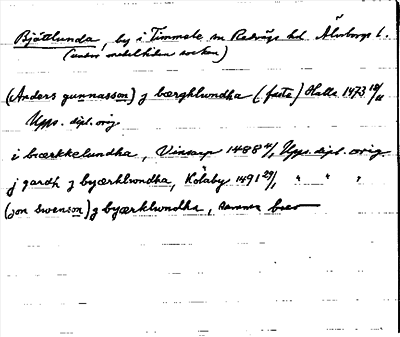 Bjättlunda, by i Timmele sn Redvägs hd Älvborgs l.
(under medeltiden socken)
(Anders gunnasson) j bærghlundha (fasta) Halla 1473 18/11
Upps. dipl. orig
i bærkkelundha, Vinsarp 1488 4/1, Upps. dipl. orig.
j gardh j byærklwndha, Kölaby 1491 29/1, " " "
(jon swenson) j byærklwndha, samma brev